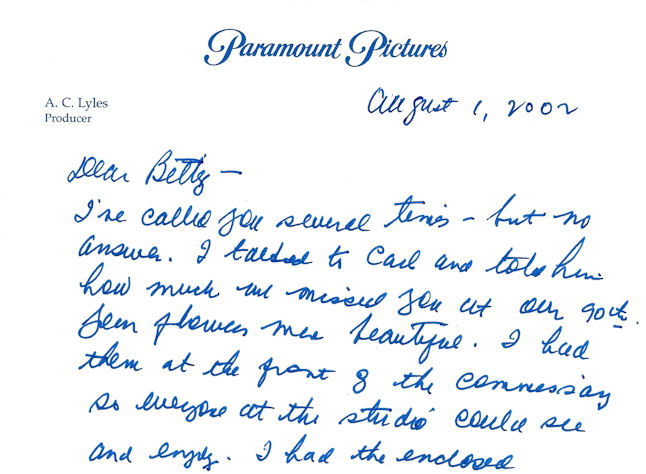 Paramount Pictures
A. C. Lyles
Producer
August 1, 2002
Dear Betty -
I've called you several times - but no
answer. I talked to Carl and told him
how much we missed you at our 90th.
Your flowers were beautiful. I had
them at the front of the commissary
so everyone at the studio could see
and enjoy. I had the enclosed